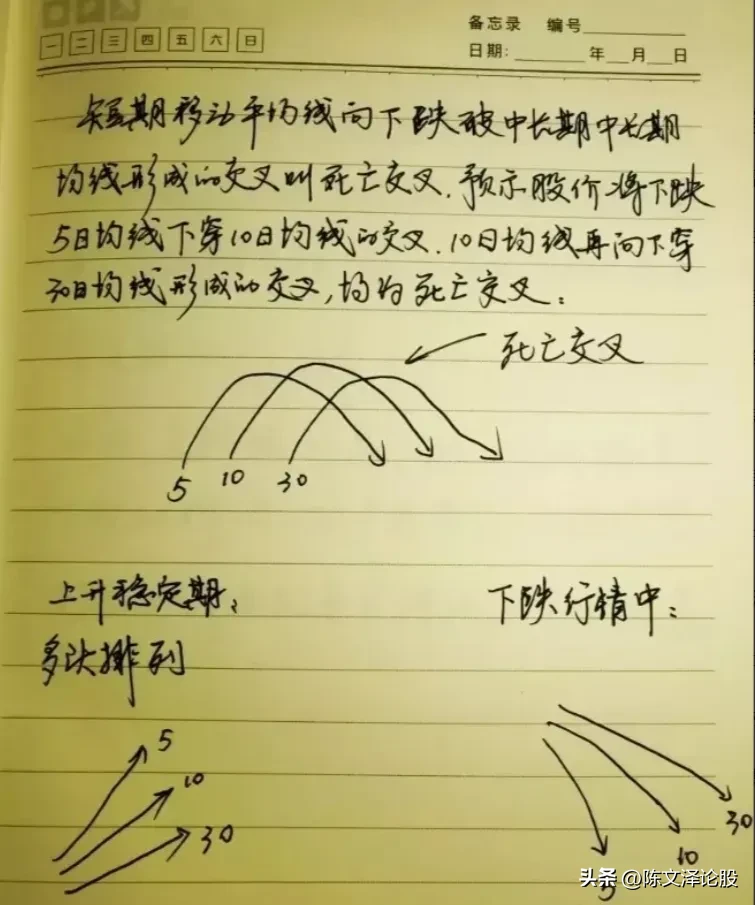 备忘录 编号
一 二 三 四 五 六 日
日期: 年 月 日
短期移动平均线向下跌破中长期中长期
均线形成的交叉叫死亡交叉.预示股价将下跌
5日均线下穿10日均线的交叉.10日均线再向下穿
30日均线形成的交叉,均为死亡交叉:
死亡交叉
5 10 30
上升稳定期:
下跌行情中:
多头排列
5
10
30
30
10
5
头条 @陈文泽论股